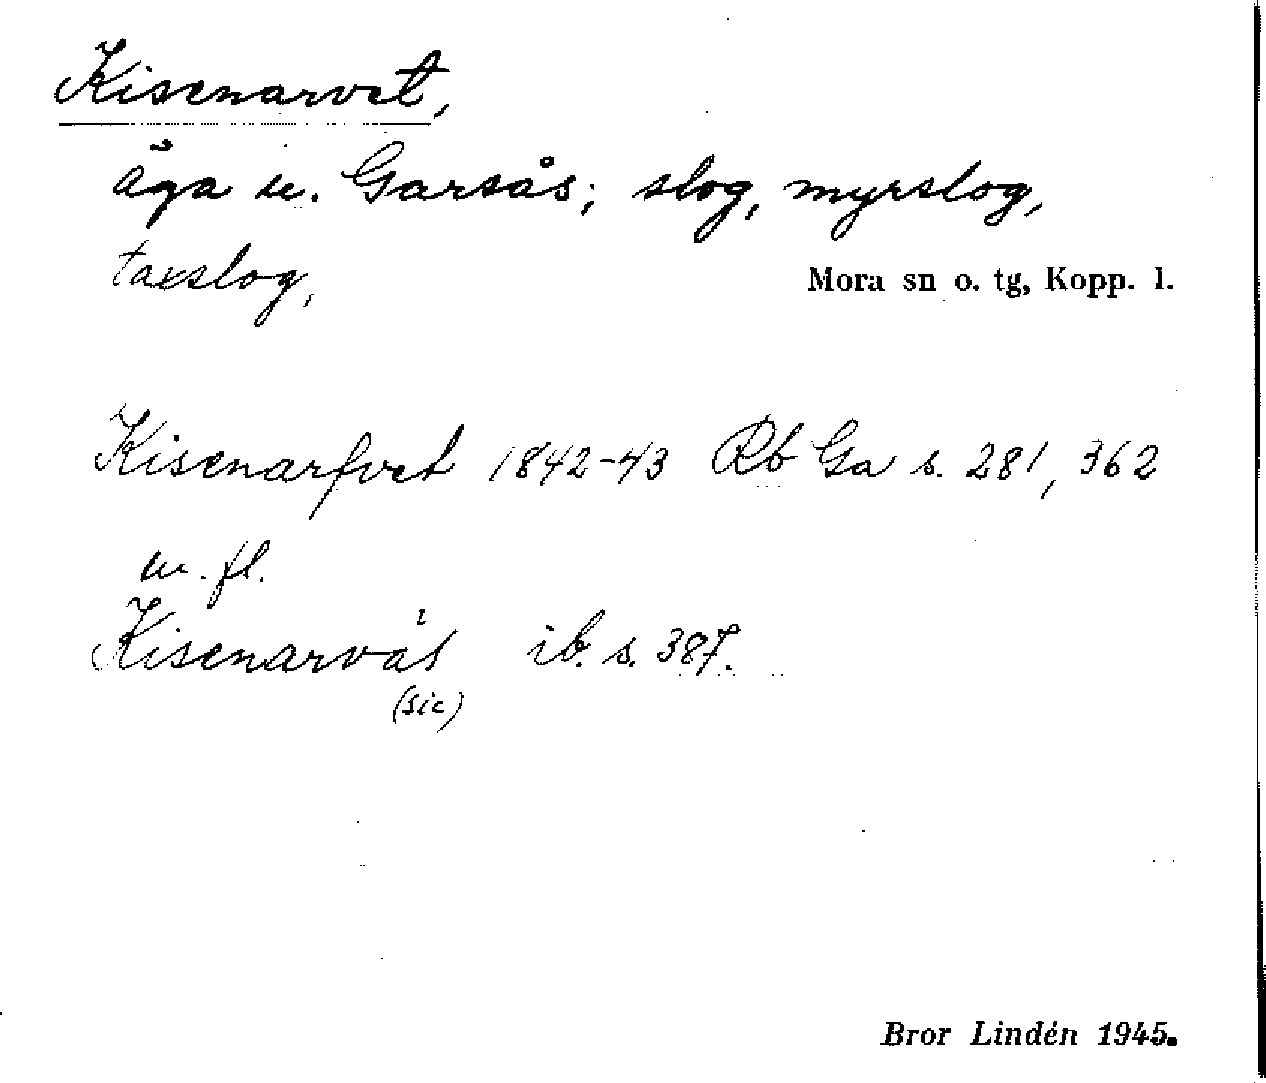 Kisenarvet,
äga u. Garsås; slog, myrslog,
taxslog,
Mora sn o. tg, Kopp. l.
Kisenarfvet 1842-43 Rb Ga s. 281, 362
m. fl.
Kisenarvås ib. s. 387.
(sic)
Bror Lindén 1945.